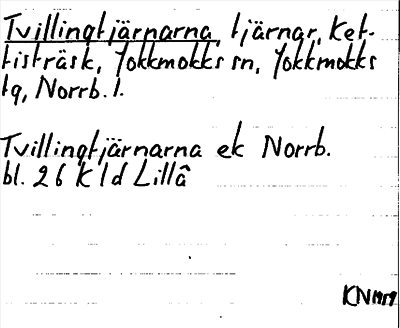 Tvillingtjärnarna, tjärnar, Ket-
tisträsk, Jokkmokks sn, Jokkmokks
tg, Norrb. l.
Tvillingtjärnarna ek Norrb.
bl. 26 K 1d Lillå
KN 1979